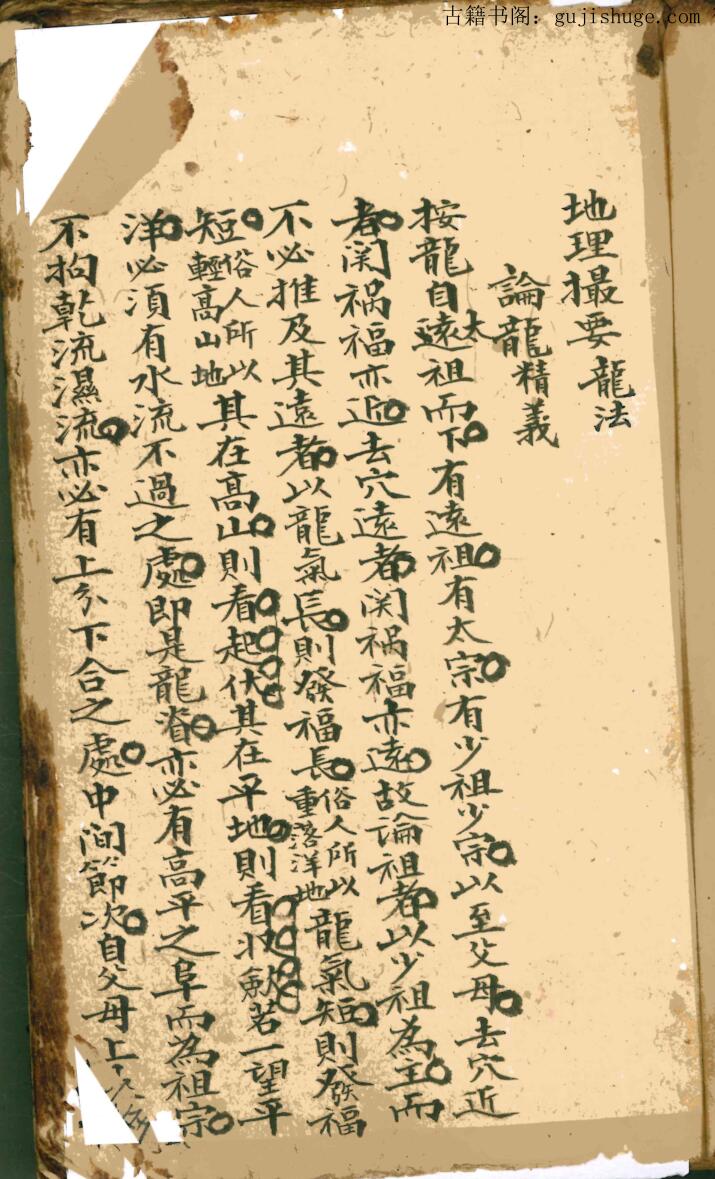 古籍书阁：gujishuge.com
地理撮要龍法
論龍精義
按龍自太遠祖而下有遠祖有太宗有少祖少宗以至父母去穴近
者関禍福亦近去穴遠者関禍福亦遠故論祖者以少祖為主而
不必推及其遠者以龍氣長則發福長俗人所以重落洋地龍氣短則發福
短俗人所以輕高山地其在高山則看起伏其在平地則看收斂若一望平
洋必須有水流不過之處即是龍脊亦必有高平之阜而為祖宗
不拘乾流濕流亦必有上分下合之處中间節次自父母上